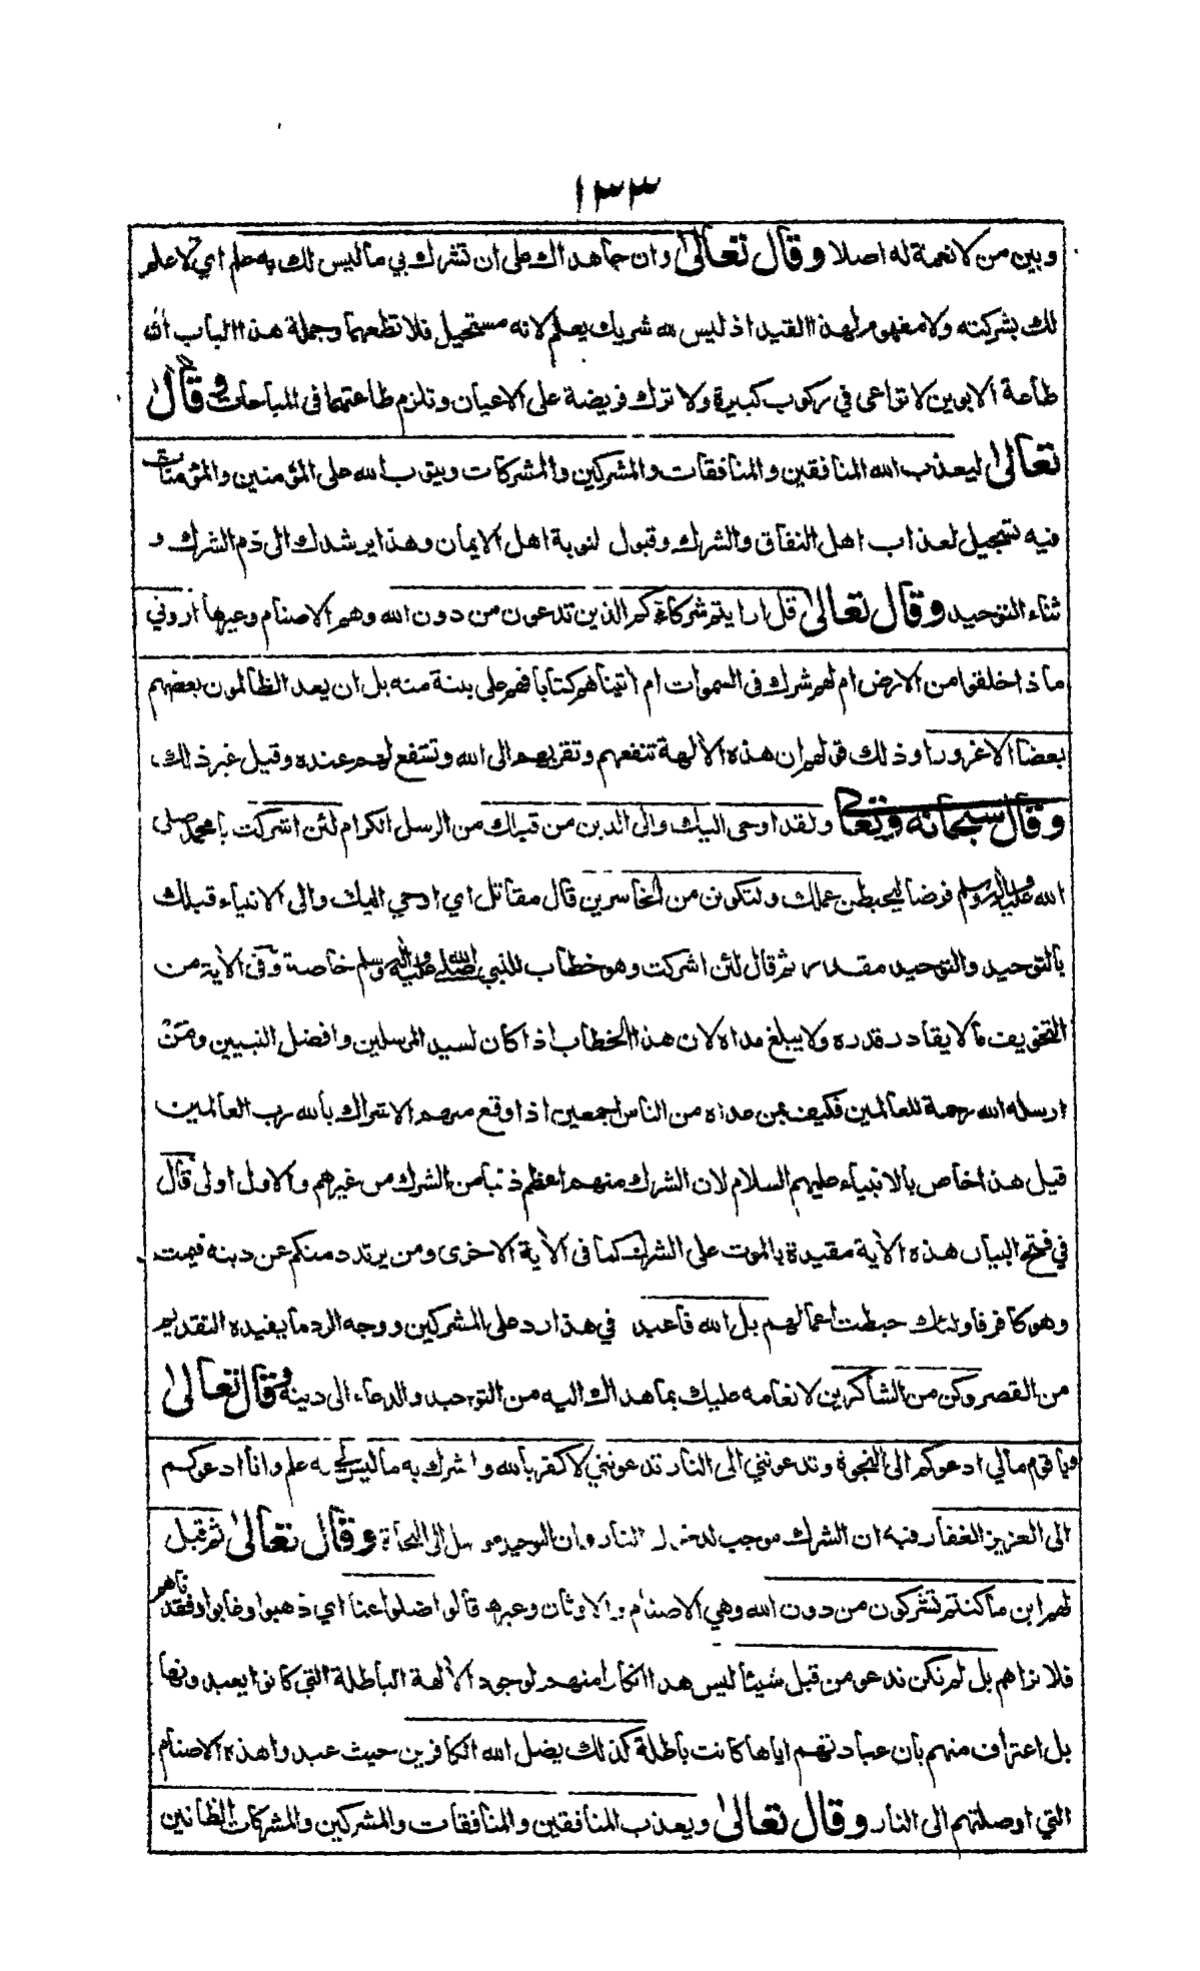 ١٣٣
وبين من لا نعمة له اصلا وقال تعالى وان جاهداك على ان تشرك بي ما ليس لك به علم اي لا علم
لك بشركته ولا مفهوم لهذا القيد اذ ليس لله شريك يعلم لانه مستحيل فلا تطعهما وجملة هذا الباب ان
طاعة الابوين لا تراعى في ركوب كبيرة ولا ترك فريضة على الاعيان وتلزم طاعتهما في المباحات وقال
تعالى ليعذب الله المنافقين والمنافقات والمشركين والمشركات ويتوب الله على المؤمنين والمؤمنات
فيه تعجيل لعذاب اهل النفاق والشرك وقبول لتوبة اهل الايمان وهذا يرشدك الى ذم الشرك و
ثناء التوحيد وقال تعالى قل ارايتم شركاءكم الذين تدعون من دون الله وهم الاصنام وغيرها اروني
ماذا خلقوا من الارض ام لهم شرك في السموات ام اتيناهم كتابا فهم على بينة منه بل ان يعد الظالمون بعضهم
بعضا الا غرورا وذلك قولهم ان هذه الالهة تنفعهم وتقربهم الى الله وتشفع لهم عنده وقيل غير ذلك
وقال سبحانه وتعالى ولقد اوحى اليك والى الذين من قبلك من الرسل الكرام لئن اشركت يا محمد صلى
الله عليه وسلم فرضا ليحبطن عملك ولتكونن من الخاسرين قال مقاتل اي اوحي اليك والى الانبياء قبلك
بالتوحيد والتوحيد مقدر ثم قال لئن اشركت وهو خطاب للنبي صلى الله عليه وسلم خاصة وفي الآية من
التخويف ما لا يقادر قدره ولا يبلغ مداه لان هذا الخطاب اذا كان لسيد المرسلين وافضل النبيين ومن
ارسله الله رحمة للعالمين فكيف بمن عداه من الناس اجمعين اذا وقع منهم الاشراك بالله رب العالمين
قيل هذا خاص بالانبياء عليهم السلام لان الشرك منهم اعظم ذنبا من الشرك من غيرهم والاول اولى قال
في فتح البيان هذه الآية مقيدة بالموت على الشرك كما في الآية الاخرى ومن يرتدد منكم عن دينه فيمت
وهو كافر فاولئك حبطت اعمالهم بل الله فاعبد في هذا رد على المشركين ووجه الرد ما يفيده التقديم
من القصر وكن من الشاكرين لانعامه عليك بما هداك اليه من التوحيد والدعاء الى دينه وقال تعالى
ويا قوم مالي ادعوكم الى النجوة وتدعونني الى النار تدعونني لاكفر بالله واشرك به ما ليس لي به علم وانا ادعوكم
الى العزيز الغفار فيه ان الشرك موجب لدخول النار وان التوحيد موصل الى النجاة وقال تعالى ثم قيل
لهم اين ما كنتم تشركون من دون الله وهي الاصنام والاوثان وغيرها قالوا ضلوا عنا اي ذهبوا وغابوا وفقدناهم
فلا نراهم بل لم نكن ندعو من قبل شيئا ليس هذا انكارا منهم لوجود الآلهة الباطلة التي كانوا يعبدونها
بل اعتراف منهم بان عبادتهم اياها كانت باطلة كذلك يضل الله الكافرين حيث عبدوا هذه الاصنام
التي اوصلتهم الى النار وقال تعالى ويعذب المنافقين والمنافقات والمشركين والمشركات الظانين